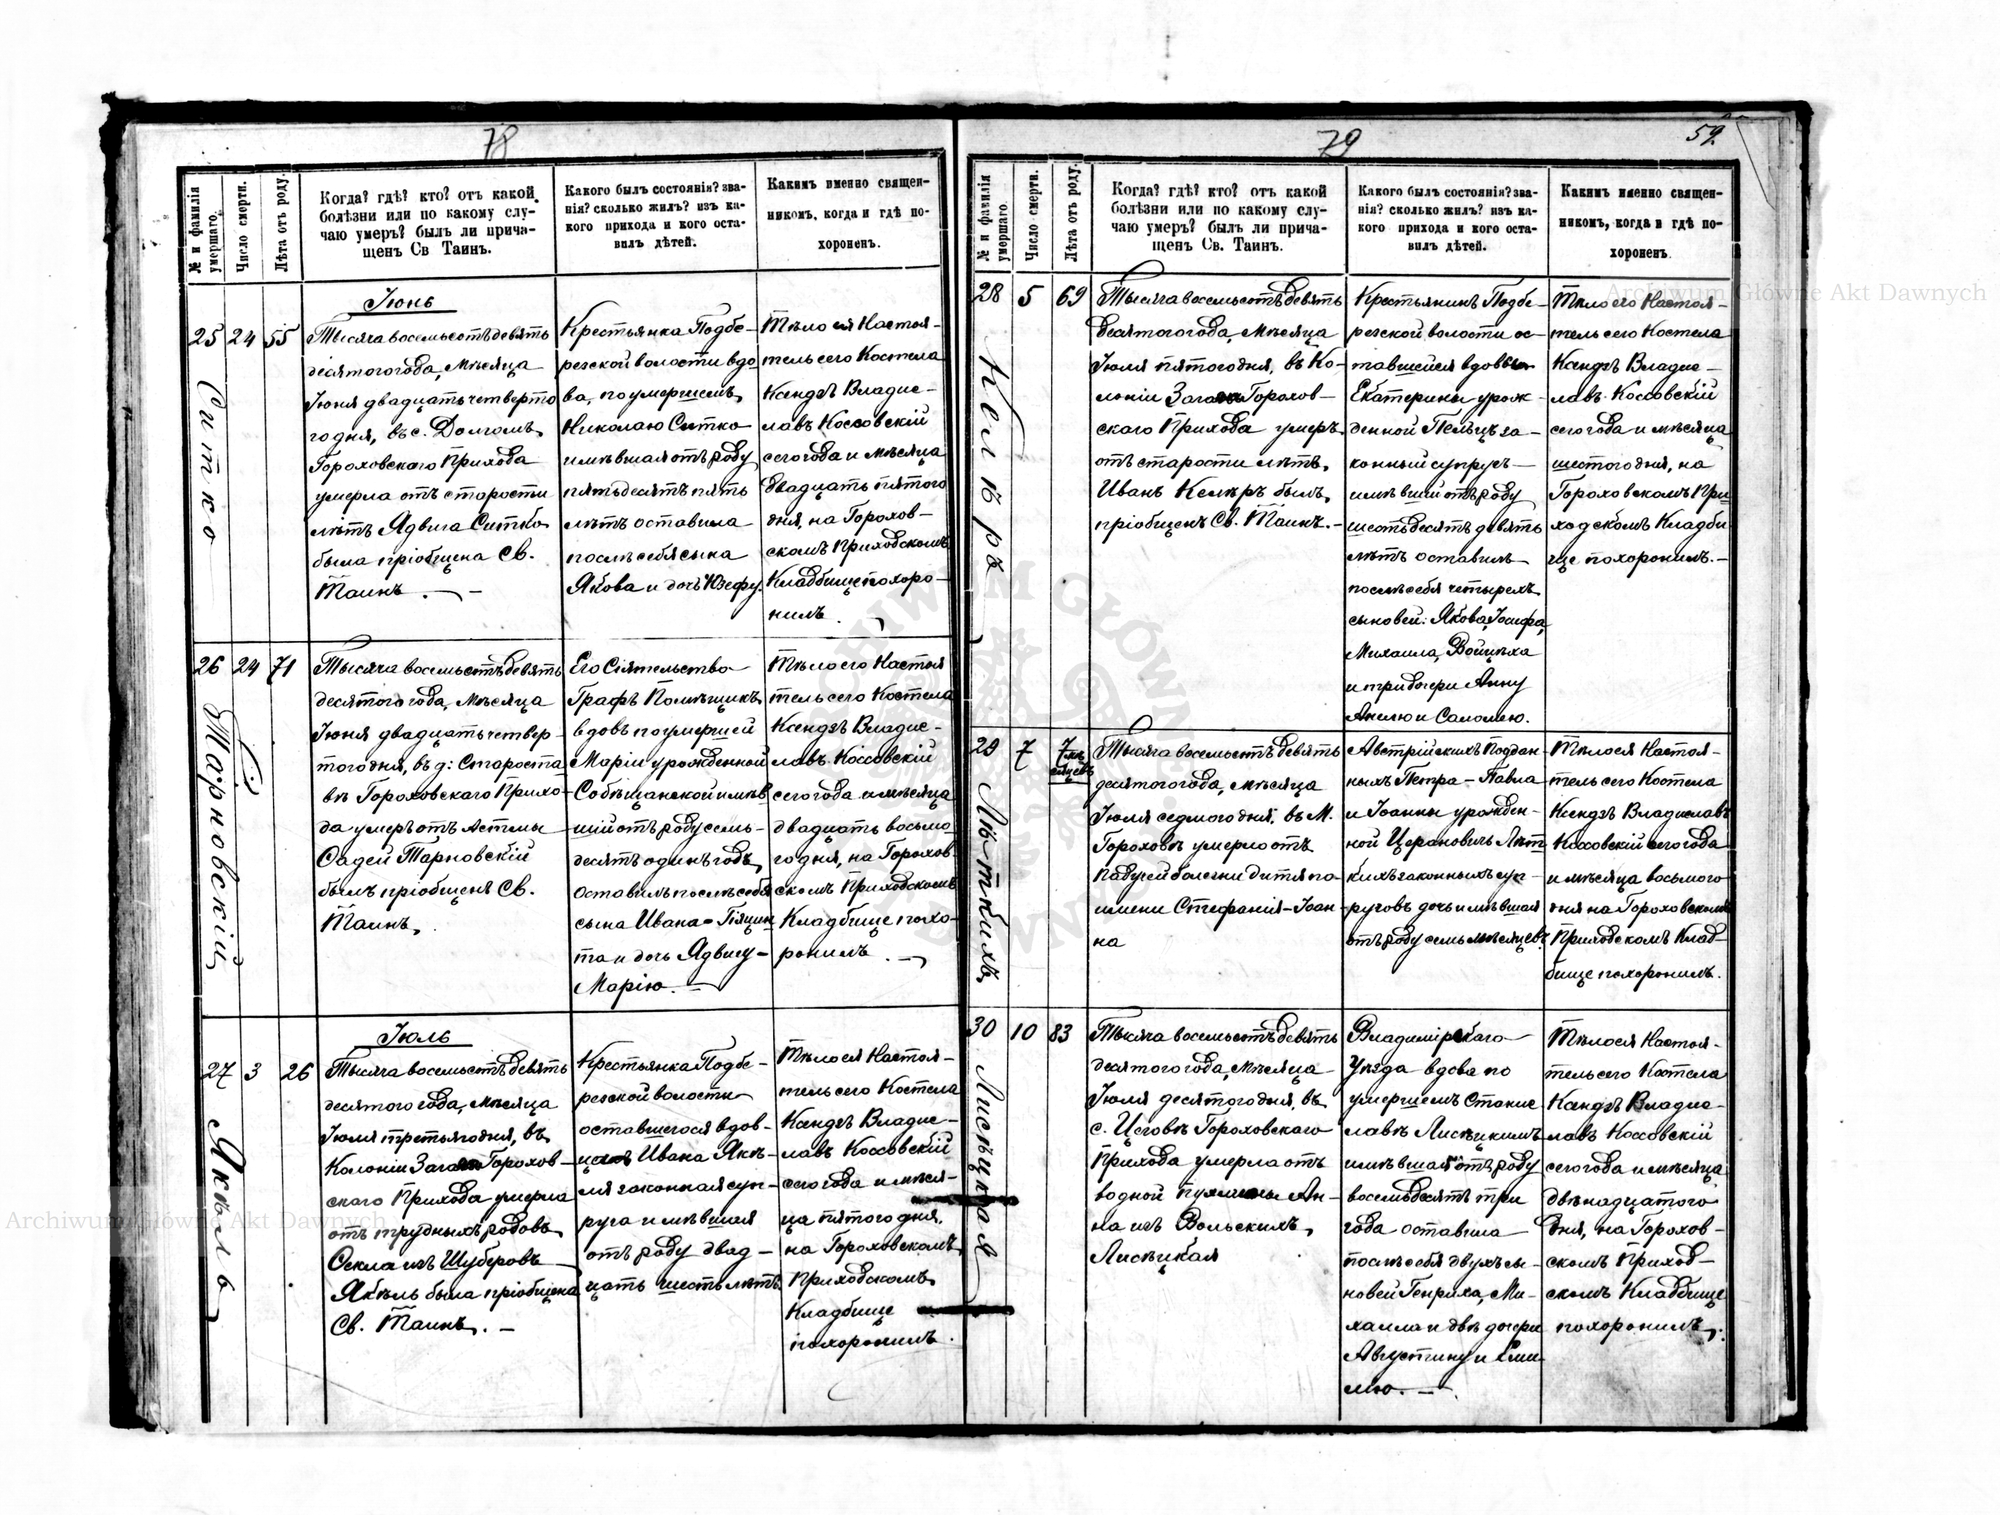 78
№ и фамилія умершаго.
Число смерти.
Лѣта отъ роду.
Когда? гдѣ? кто? отъ какой
болѣзни или по какому слу-
чаю умеръ? былъ ли прича-
щенъ Св Таинъ.
Какого былъ состоянія? зва-
нія? сколько жилъ? изъ ка-
кого прихода и кого оста-
вилъ дѣтей.
Какимъ именно священ-
никомъ, когда и гдѣ по-
хороненъ.
25
Ситко
24
55
Іюнь
Тысяча восемьсотъ девять
десятого года, Мѣсяца
Іюня двадцать четверто
го дня, въ с. Долгомъ
Гороховскаго Прихода
умерла отъ старости
лѣтъ Ядвига Ситко
была пріобщена Св.
Таинъ. —
Крестьянка Подбе-
резской волости вдо
ва, по умершемъ
Николаю Ситко
имѣвшая отъ роду
пятьдесятъ пять
лѣтъ оставила
послѣ себя сына
Якова и дочь Юзефу.
Тѣло ея Настоя-
тель сего Костела
Ксендзъ Владис-
лавъ Коссовскій
сего года и мѣсяца
двадцать пятого
дня, на Горохов-
скомъ Приходскомъ
Кладбище похоро-
нилъ.
26
Гр. Тарновскій
24
71
Тысяча восемьсотъ девять
десятого года, Мѣсяца
Іюня двадцать четвер-
того дня, въ д: Староста
въ Гороховскаго Прихо-
да умеръ отъ Астмы
Фадей Тарновскій
былъ пріобщенъ Св.
Таинъ.
Его Сіятельство
Графъ Помѣщикъ
вдовъ по умершей
Маріи урожденной
Собѣщанской имѣв
шій отъ роду семь-
десятъ одинъ годъ
оставилъ послѣ себя
сына Ивана-Гіяцин
та и дочь Ядвигу-
Марію. —
Тѣло его Настоя
тель сего Костела
Ксендзъ Владис-
лавъ Коссовскій
сего года и мѣсяца
двадцать восьмо
го дня, на Горохов
скомъ Приходскомъ
Кладбище похо-
ронилъ. —
27
Якѣль
3
26
Іюль
Тысяча восемьсотъ девять
десятого года, Мѣсяца
Іюля третьяго дня, въ
Колоніи Загай Горохов-
скаго Прихода умерла
отъ трудныхъ родовъ
Фекла изъ Шуберовъ
Якѣль была пріобщена
Св. Таинъ. —
Крестьянка Подбе-
резской волости
оставшегося вдов-
цемъ Ивана Якѣ-
ля законная суп-
руга имѣвшая
отъ роду двад-
цать шесть лѣтъ
Тѣло ея Настоя-
тель сего Костела
Ксендзъ Владис-
лавъ Коссовскій
сего года и мѣся-
ца пятого дня,
на Гороховскомъ
Приходскомъ
Кладбище
похоронилъ.
79
59.
№ и фамилія умершаго.
Число смерти.
Лѣта отъ роду.
Когда? гдѣ? кто? отъ какой
болѣзни или по какому слу-
чаю умеръ? былъ ли прича-
щенъ Св. Таинъ.
Какого былъ состоянія? зва-
нія? сколько жилъ? изъ ка-
кого прихода и кого оста-
вилъ дѣтей.
Какимъ именно священ-
никомъ, когда и гдѣ по-
хороненъ.
28
Келѣръ
5
69
Тысяча восемьсотъ девять
десятого года, Мѣсяца
Іюля пятого дня, въ Ко-
лоніи Загай Горохов-
скаго Прихода умеръ
отъ старости лѣтъ,
Иванъ Келѣръ былъ
пріобщенъ Св. Таинъ. —
Крестьянинъ Подбе-
резской волости ос-
тавшейся вдовы
Екатерины урож
денной Пельцъ за-
конный супругъ —
имѣвшій отъ роду
шестьдесятъ девять
лѣтъ оставилъ
послѣ себя четырехъ
сыновей: Якова, Іосифа,
Михаила, Войцѣха
и три дочери Анну
Анелю и Саломею.
Тѣло его Настоя-
тель сего Костела
Ксендзъ Владис-
лавъ Коссовскій
сего года и мѣсяца
шестого дня, на
Гороховскомъ При-
ходскомъ Кладби
ще похоронилъ. —
29
Лѣткихъ
7
7 мѣ
сяцевъ
Тысяча восемьсотъ девять
десятого года, мѣсяца
Іюля седмого дня, въ М.
Гороховъ умерло отъ
падучей болезни дитя по
имени Стефанія-Іоан
на
Австрійскихъ Поддан
ныхъ Петра-Павла
и Іоанны урожден-
ной Церановичъ Лѣт
кихъ законныхъ суп-
руговъ дочь имѣвшая
отъ роду семь мѣсяцевъ.
Тѣло ея Настоя-
тель сего Костела
Ксендзъ Владиславъ
Коссовскій сего года
и мѣсяца восьмого
дня на Гороховскомъ
Приходскомъ Клад-
бище похоронилъ.
30
Лисѣцкая
10
83
Тысяча восемьсотъ девять
десятого года, Мѣсяца
Іюля десятого дня, въ
с. Цеговъ Гороховскаго
Прихода умерла отъ
водной пухлины Ан-
на изъ Вольскихъ
Лисѣцкая
Владимірскаго
Уѣзда вдова по
умершемъ Станис
лавѣ Лисѣцкимъ
имѣвшая отъ роду
восемьдесятъ три
года оставила
послѣ себя двухъ сы-
новей Генриха, Ми-
хаила и двѣ дочери
Августину и Еми
лію. —
Тѣло ея Настоя-
тель сего Костела
Ксендзъ Владис-
лавъ Коссовскій
сего года и мѣсяца
двѣнадцатого
дня, на Горохов-
скомъ Приход-
скомъ Кладбище
похоронилъ.
Archiwum Główne Akt Dawnych
Archiwum Główne Akt Dawnych